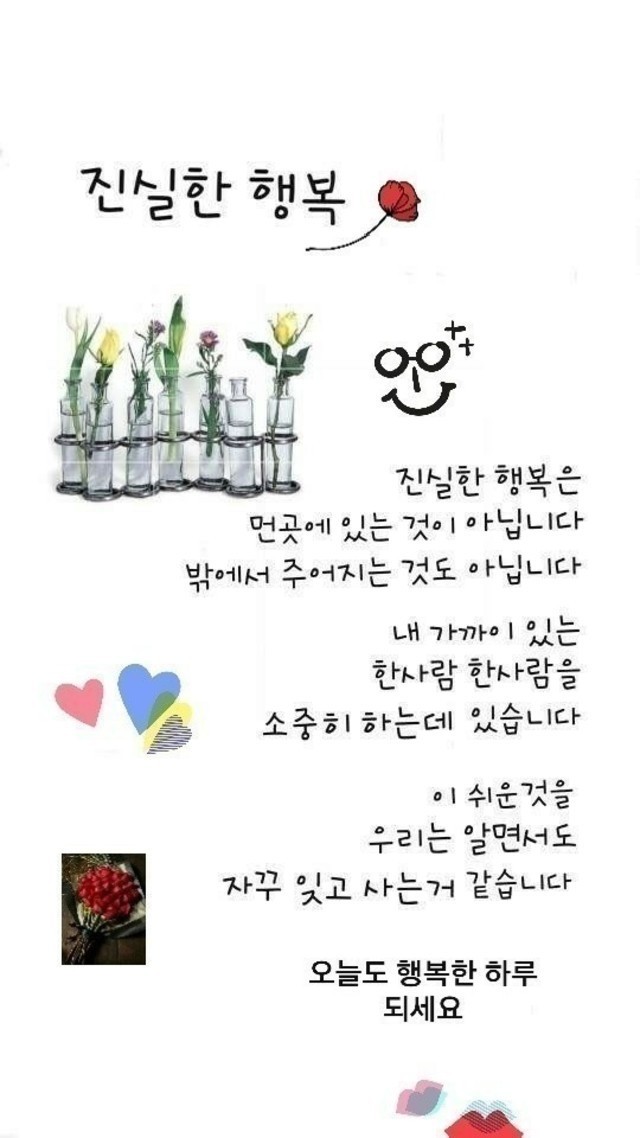 진실한 행복
진실한 행복은
먼곳에 있는 것이 아닙니다
밖에서 주어지는 것도 아닙니다
내 가까이 있는
한사람 한사람을
소중히 하는데 있습니다
이 쉬운것을
우리는 알면서도
자꾸 잊고 사는거 같습니다
오늘도 행복한 하루
되세요